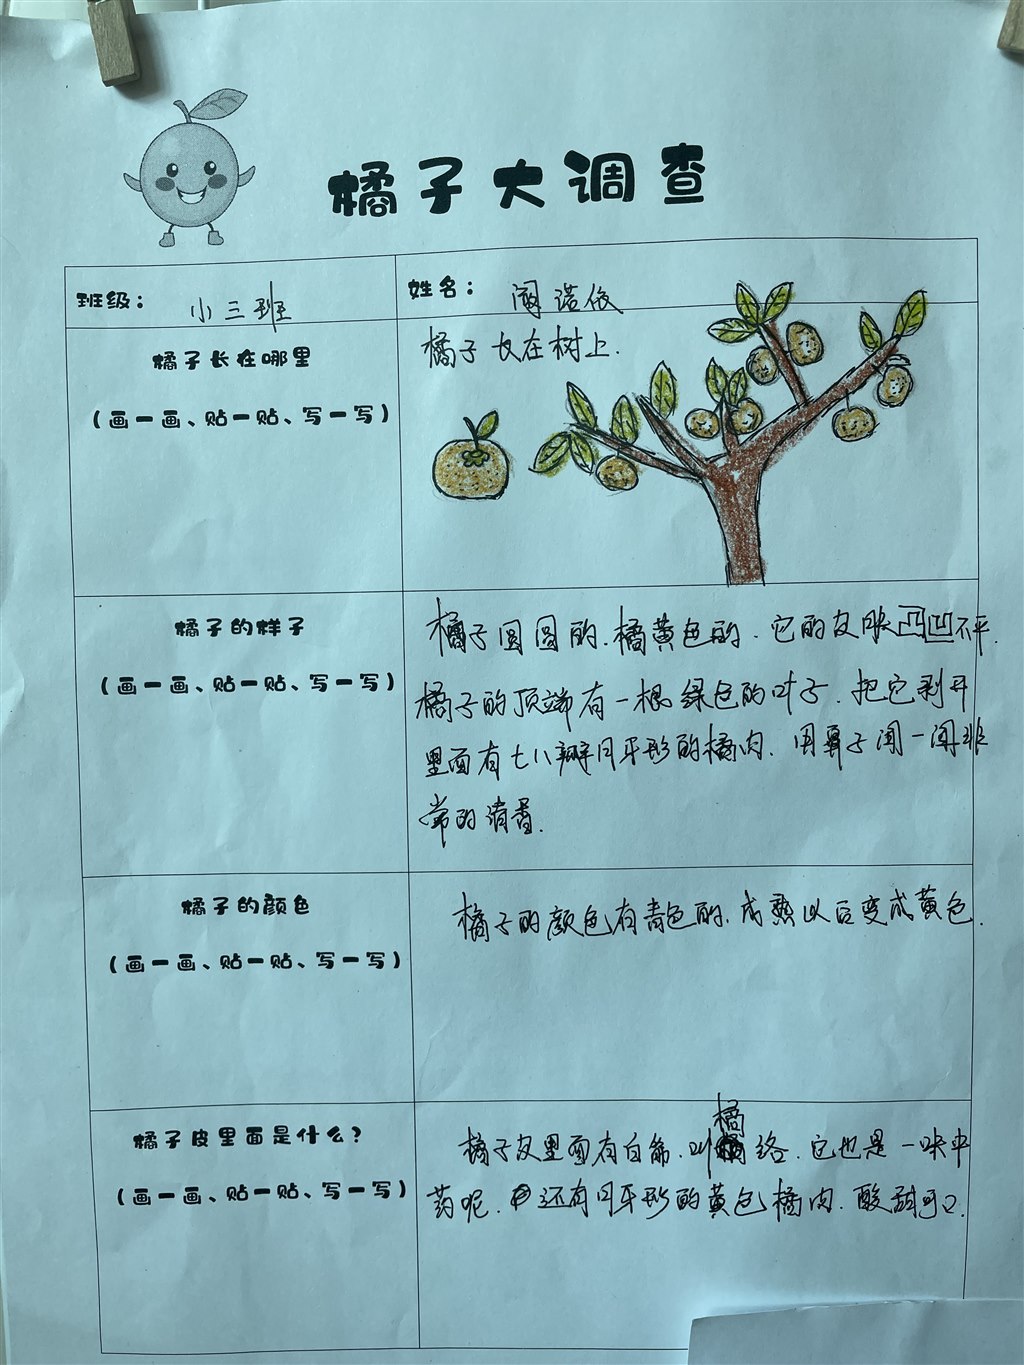 橘子大调查
班级：小三班
姓名：阚诺依
橘子长在哪里
（画一画、贴一贴、写一写）
橘子长在树上.
橘子的样子
（画一画、贴一贴、写一写）
橘子圆圆的.橘黄色的.它的皮肤凸凹不平.
橘子的顶端有一根绿色的叶子.把它剥开
里面有七八瓣月牙形的橘肉.用鼻子闻一闻非
常的清香.
橘子的颜色
（画一画、贴一贴、写一写）
橘子的颜色有青色的.成熟以后变成黄色.
橘子皮里面是什么？
（画一画、贴一贴、写一写）
橘子皮里面有白筋.叫橘络.它也是一味中
药呢.还有月牙形的黄色橘肉.酸甜可口.